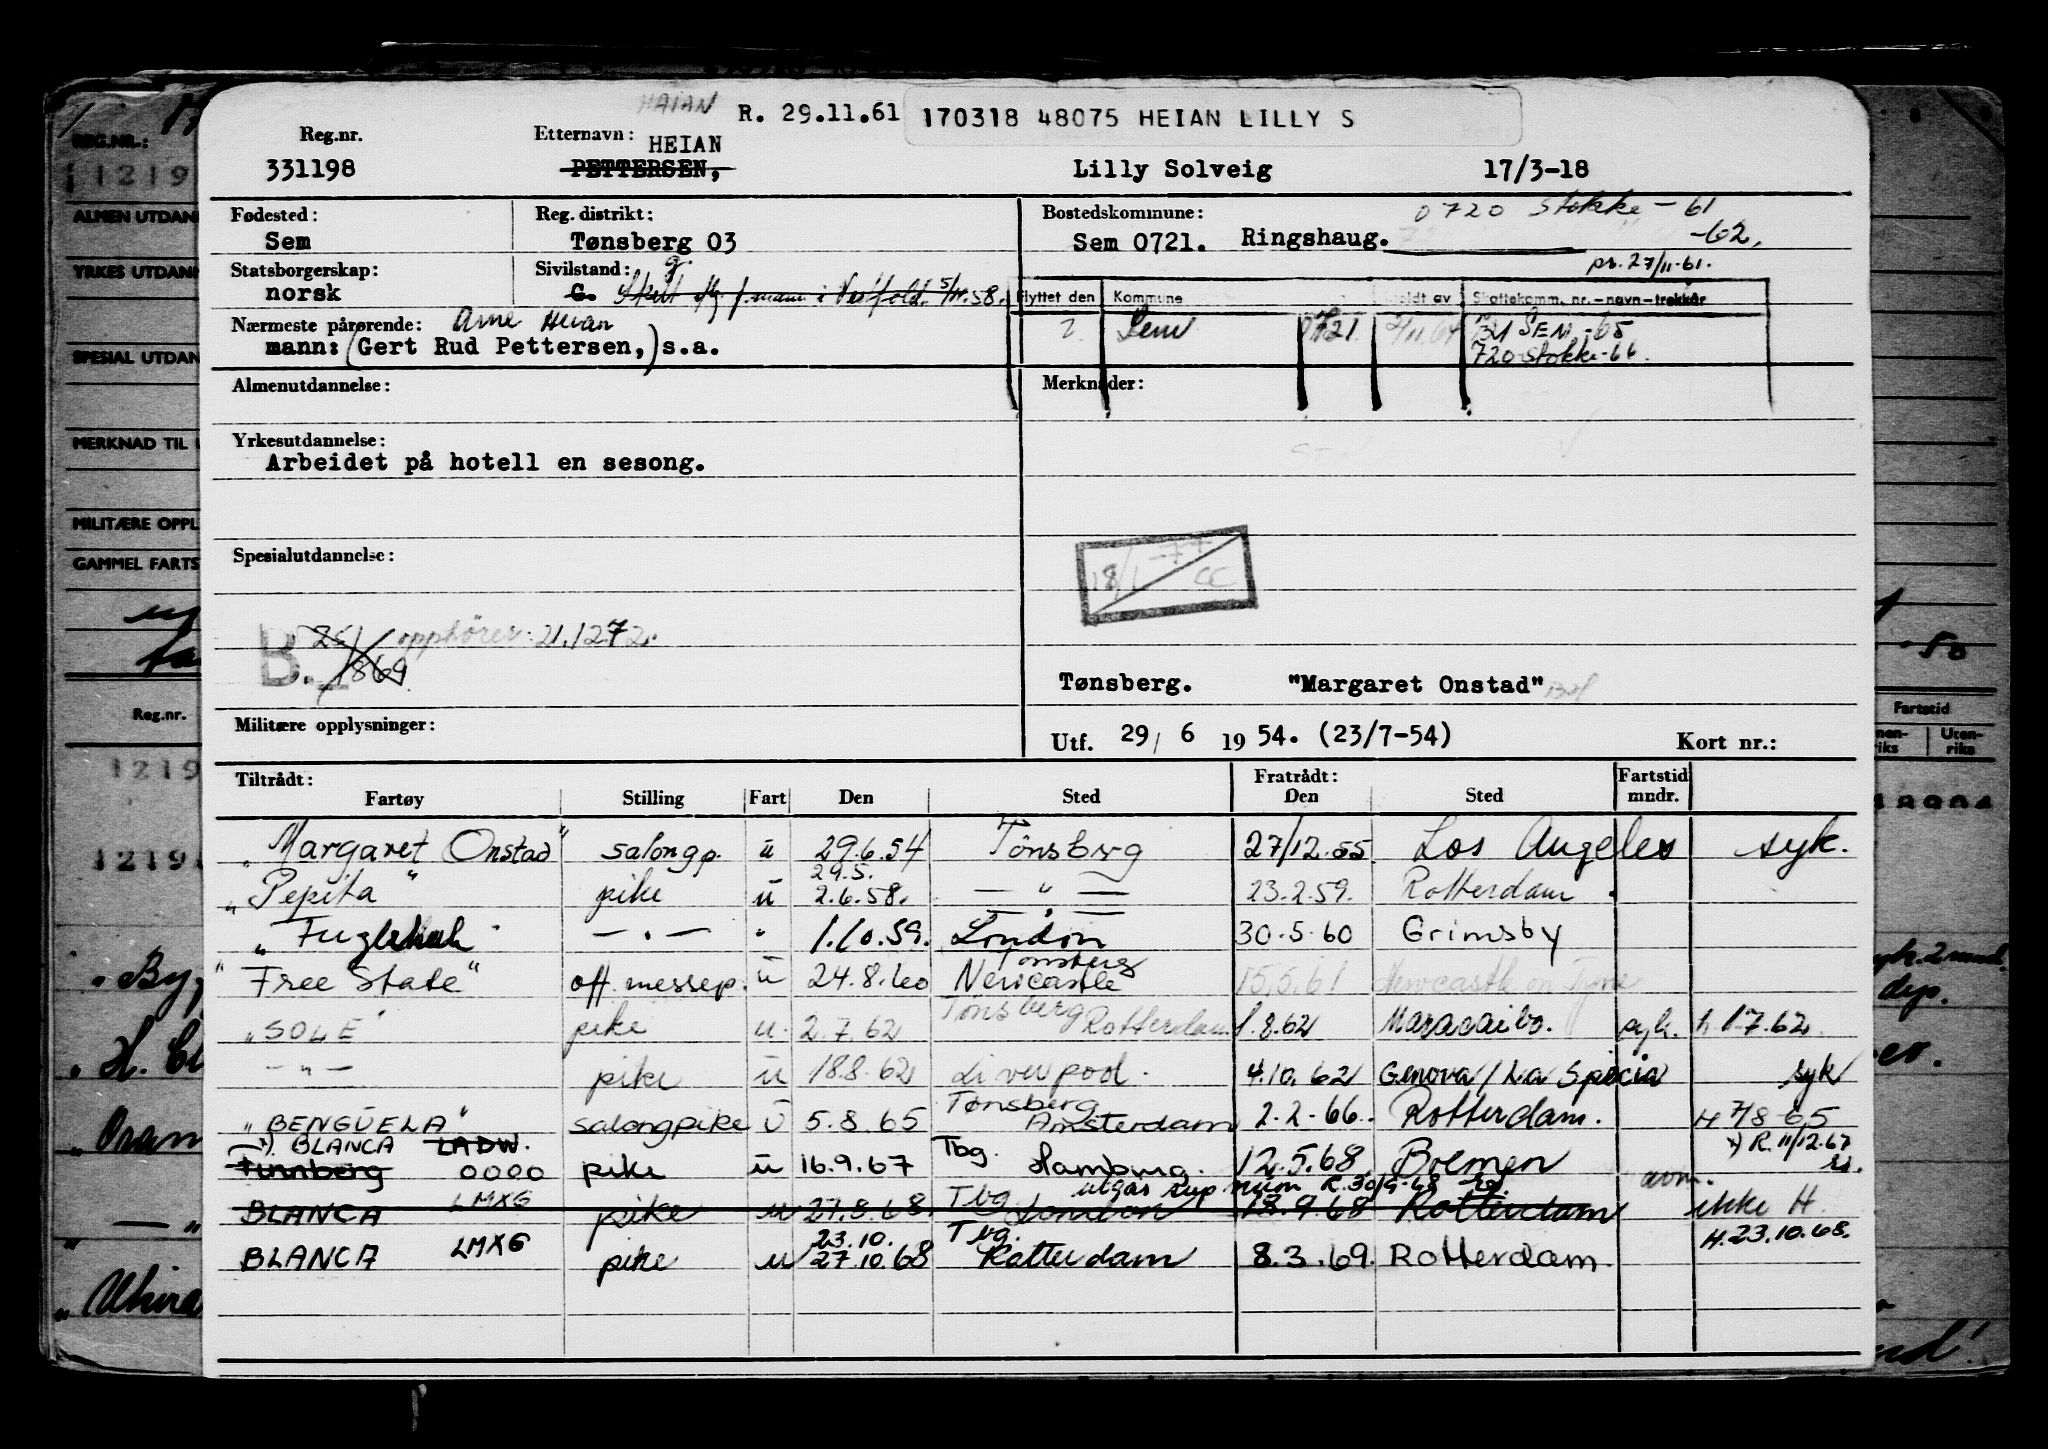 HAIAN R. 29.11.61 170318 48075 HEIAN LILLY S
Reg.nr. Etternavn: HEIAN
331198 PETTERSEN, Lilly Solveig 17/3-18
Fødested: Reg. distrikt: Bostedskommune: 0720 Stokke - 61
Sem Tønsberg 03 Sem 0721. Ringshaug. -62,
Statsborgerskap: Sivilstand: g pr. 27/11-61.
norsk G. Skilt f.mann i Vestfold. 5/11.58.
Flyttet den Kommune Meldt av Skattekomm. nr.-navn-trekkår
Nærmeste pårørende: Arne Heian
Sem 0721 2/11 64 SEM -65
mann: (Gert Rud Pettersen,) s.a.
720 Stokke-66.
Almenutdannelse: Merknader:
Yrkesutdannelse:
Arbeidet på hotell en sesong.
Spesialutdannelse:
18/1 -77 CC
B. 25/1 1869 opphører: 21.12.72.
Tønsberg. "Margaret Onstad"
Militære opplysninger:
Utf. 29/ 6 1954. (23/7-54) Kort nr.:
Tiltrådt: Fratrådt: Fartstid
Fartøy Stilling Fart Den Sted Den Sted mndr.
"Margaret Onstad" salongp. u 29.6.54 Tønsberg 27/12.55. Los Angeles syk.
29.5.
"Pepita" pike u 2.6.58. — " — 23.2.59. Rotterdam
— " —
"Fuglehauk" — " — " 1.10.59. London 30.5.60 Grimsby
Tønsberg
"Free State" off. messep. u 24.8.60 Newcastle 15.5.61 Newcastle on Tyne
"SOLE" pike u. 2.7.62 Tønsberg Rotterdam 1.8.62 Maracaibo. syk. h. 1.7.62.
— " — pike u 18.8.62 Liverpool. 4.10.62 Genova/La Spezia syk
"BENGUELA" salongpike u 5.8.65 Tønsberg Amsterdam 2.2-66. Rotterdam. H 7/8-65
x). BLANCA LADW. x) R. 11/12.67
Tunnberg 0000 pike u 16.9.67 Tbg. Hamburg. 12.5.68 Bremen avm.
utgår R.30/9-68
BLANCA LMXG pike u 27.8.68 Tbg London 18.9.68 Rotterdam ikke H
23.10. Tbg. H. 23.10.68.
BLANCA LMXG pike u 27.10.68 Rotterdam 8.3.69. Rotterdam.
REG.NR.:
1219
ALMEN UTDAN
YRKES UTDAN
SPESIAL UTDAN
MERKNAD TIL
MILITÆRE OPPL
GAMMEL FARTS
Reg.nr.
1219
1219
Fartstid
Uten-
riks